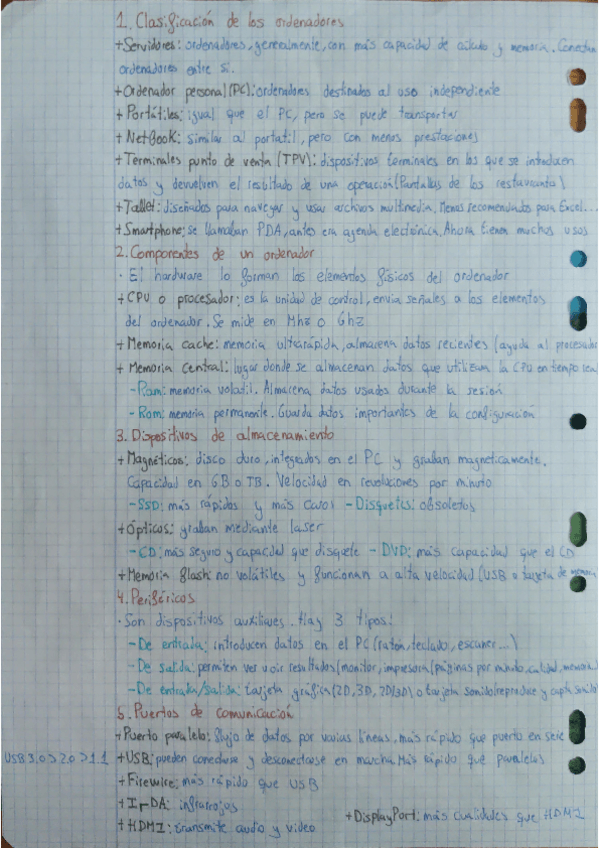 1. Clasificación de los ordenadores
+Servidores: ordenadores, generalmente, con más capacidad de cálculo y memoria. Conectan
ordenadores entre si.
+Ordenador personal (PC): ordenadores destinados al uso independiente
+Portátiles: igual que el PC, pero se puede transportar
+NetBook: similar al portatil, pero con menos prestaciones
+Terminales punto de venta (TPV): dispositivos terminales en los que se introducen
datos y devuelven el resultado de una operación (Pantallas de los restaurantes)
+Tablet: diseñados para navegar y usar archivos multimedia. Menos recomendados para Excel...
+Smartphone: se llamaban PDA, antes era agenda electrónica. Ahora tienen muchos usos
2. Componentes de un ordenador
· El hardware lo forman los elementos físicos del ordenador
+CPU o procesador: es la unidad de control, envia señales a los elementos
del ordenador. Se mide en Mhz o Ghz
+Memoria cache: memoria ultrarápida, almacena datos recientes (ayuda al procesador
+Memoria central: lugar donde se almacenan datos que utilizam la CPU en tiempo real
-Ram: memoria volatil. Almacena datos usados durante la sesión
-Rom: memoria permanente. Guarda datos importantes de la configuración
3. Dispositivos de almacenamiento
+Magnéticos: disco duro, integrados en el PC y graban magneticamente.
Capacidad en GB o TB. Velocidad en revoluciones por minuto
-SSD: más rápidos y más caros -Disquetes: obsoletos
+Ópticos: graban mediante laser
-CD: más seguro y capacidad que disquete -DVD: más capacidad que el CD
+Memoria flash: no volátiles y funcionan a alta velocidad (USB o tarjeta de memoria
4. Periféricos
· Son dispositivos auxiliares. Hay 3 tipos:
-De entrada: introducen datos en el PC (ratón, teclado, escaner...)
-De salida: permiten ver u oir resultados (monitor, impresora (páginas por minuto, calidad, memoria)
-De entrada/salida: tarjeta gráfica (2D, 3D, 2D/3D) o tarjeta sonido (reproduce y capta sonido)
5. Puertos de comunicación
+Puerto paralelo: flujo de datos por varias lineas, más rápido que puerto en serie
USB 3.0 > 2.0 > 1.1 +USB: pueden conectarse y desconectarse en marcha. Más rápido que paralelos
+Firewire: más rápido que USB
+IrDA: infrarojos
+DisplayPort: más cualidades que HDMI
+HDMI: transmite audio y video